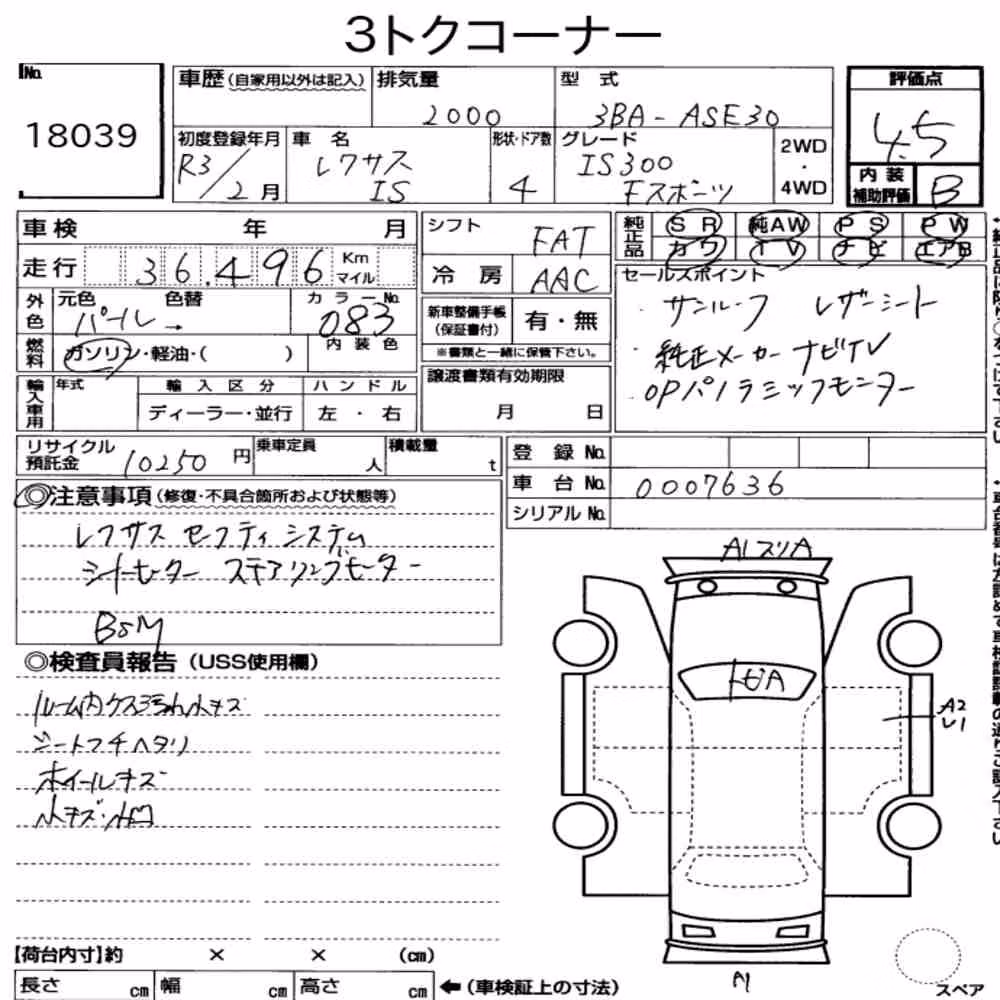 3トクコーナー
No.
18039
車歴(自家用以外は記入)
排気量
2000
型 式
3BA-ASE30
評価点
4.5
内装
補助評価
B
初度登録年月
R3/2月
車 名
レクサス
IS
形状・ドア数
4
グレード
IS300
Fスポーツ
2WD
・
4WD
車検 年 月
走行
36,496
Km
マイル
シフト
FAT
冷 房
AAC
純正品
SR 純AW PS PW
カワ TV ナビ エアB
セールスポイント
・サンルーフ レザーシート
・純正メーカーナビTV
・OPパノラミックモニター
外色
元色 色替
パール→
カラーNo.
083
燃料
ガソリン・軽油・( )
内装色
新車整備手帳
(保証書付)
有・無
※書類と一緒に保管下さい。
輸入車用
年式
輸入区分
ディーラー・並行
ハンドル
左 ・ 右
譲渡書類有効期限
月 日
リサイクル
預託金
10250円
乗車定員
人
積載量
t
登 録 No.
車 台 No.
0007636
シリアル No.
◎注意事項(修復・不具合箇所および状態等)
レクサス セーフティシステム
シートヒーター ステアリングヒーター
BSM
◎検査員報告(USS使用欄)
ルーム内ケス汚れ小キズ
シートフチヘタリ
ホイールキズ
小キズ・小凹
A1スリA
トビA
A2
U1
A1
スペア
【荷台内寸】約 × × (cm)
長さ cm 幅 cm 高さ cm ←(車検証上の寸法)